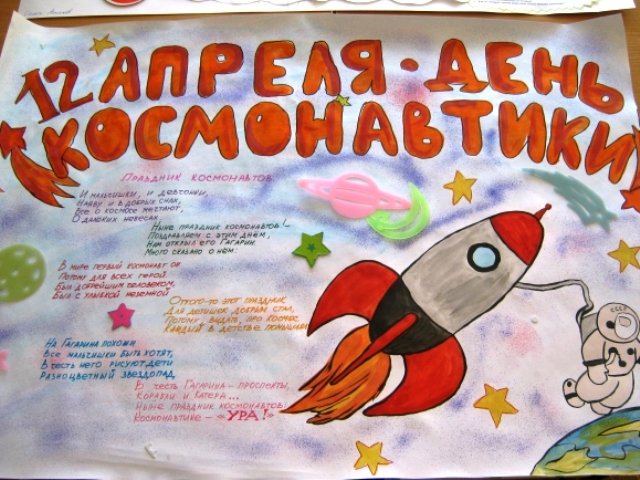 12 АПРЕЛЯ - ДЕНЬ
КОСМОНАВТИКИ
ПРАЗДНИК КОСМОНАВТОВ.
И мальчишки, и девчонки,
Наяву и в добрых снах,
Все о космосе мечтают,
О далёких небесах.
Ныне праздник космонавтов! –
Поздравляем с этим днём,
Нам открыл его Гагарин.
Много сказано о нём.
В мире первый космонавт он
Потому для всех герой.
Был добрейшим человеком,
Был с улыбкой неземной
Оттого-то этот праздник
Для детишек добрым стал,
Потому, видать, про космос
Каждый в детстве помышлял
На Гагарина похожи
Все мальчишки быть хотят,
В честь него рисуют дети
Разноцветный звездопад,
В честь Гагарина – проспекты,
Корабли и катера...
Ныне праздник космонавтов!
Космонавтике – «УРА!»
СССР